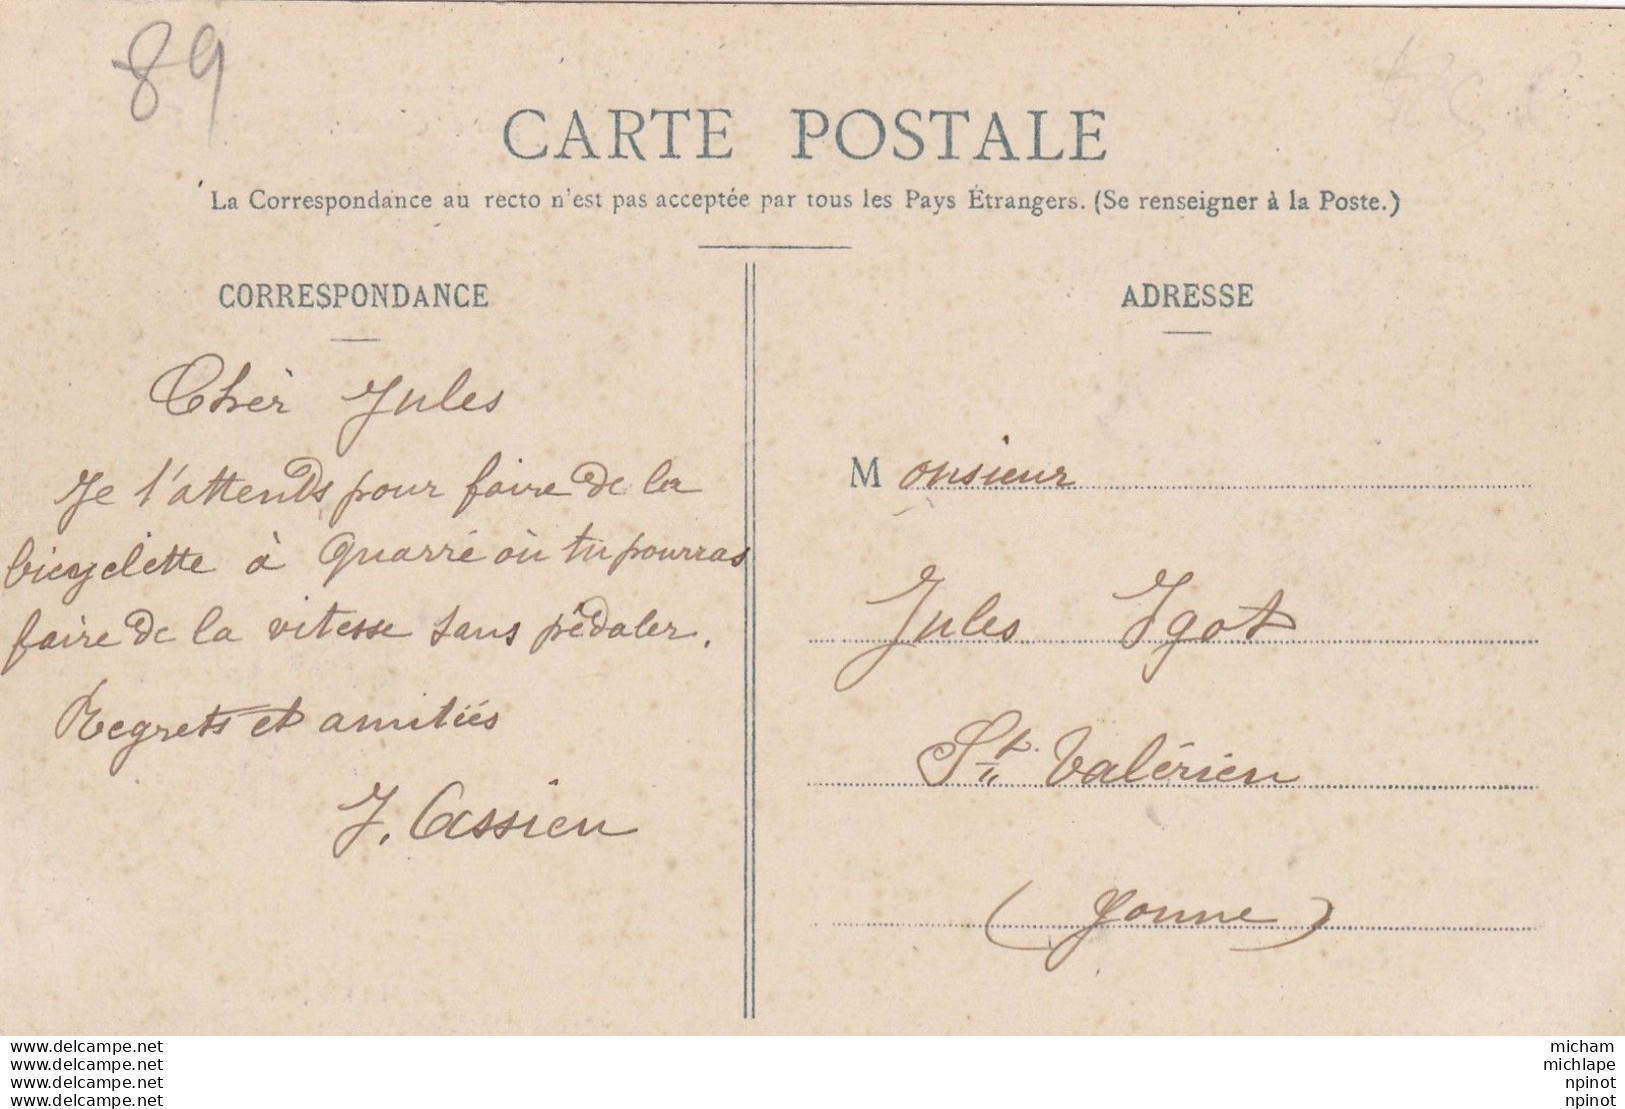 89
CARTE POSTALE
La Correspondance au recto n'est pas acceptée par tous les Pays Étrangers. (Se renseigner à la Poste.)
CORRESPONDANCE
Chèr Jules
Je t'attends pour faire de la
bicyclette à Quarré où tu pourras
faire de la vitesse sans pédaler.
Regrets et amitiés
J. Cassien
ADRESSE
Monsieur
Jules Igot
St Valérien
(Yonne)
www.delcampe.net
www.delcampe.net
www.delcampe.net
www.delcampe.net
micham
michlape
npinot
npinot